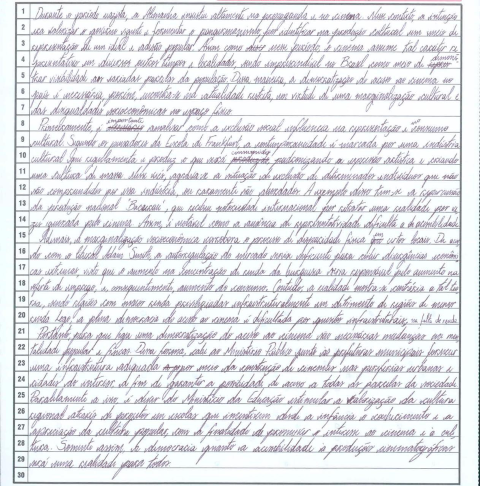 1 Durante o período nazista, a Alemanha investiu altamente na propaganda e no cinema. Nesse contexto, a intenção
2 era valorizar o governo vigente e formular o pensamento, por identificar na produção cultural um meio de
3 representação de um ideal e adesão popular. Assim como nesse período, o cinema assume tal caráter re
4 presentativo em diversos outros tempos e localidades, sendo imprescindível no Brasil como meio de demons
5 trar visibilidade às variadas parcelas da população. Dessa maneira, a democratização do acesso ao cinema no
6 país é necessária, porém, mostra-se na atualidade restrita, em virtude de uma marginalização cultural e
7 das desigualdades socioeconômicas no espaço físico.
8 Primeiramente, é importante analisar como a inclusão social influencia na representação e no consumo
9 cultural. Segundo os pensadores da Escola de Frankfurt, a contemporaneidade é marcada por uma indústria
10 cultural que regulamenta a produz o que será consumido, padronizando a expressão artística e criando
11 uma cultura de massa. Nesse viés, agrava-se a situação de exclusão de determinados indivíduos que não
12 são compreendidos por essa indústria, ou raramente são abordados. A exemplo disso tem-se a repercussão
13 da produção nacional "Bacurau", que recebeu notoriedade internacional por retratar uma realidade pou co
14 quando pelo cinema. Assim, é notável como a ausência de representatividade dificulta a acessibilidade
15 Ademais, a marginalização socioeconômica corrobora o processo de disparidade física em vários locais. De acor
16 do com o liberal Adam Smith, a autorregulação do mercado seria suficiente para evitar discrepâncias econômi
17 cas extremas, visto que o aumento na concentração de renda da burguesia seria responsável pelo aumento na
18 oferta de emprego e, consequentemente, aumento do consumo. Contudo, a realidade mostra-se contrária a tal teo
19 ria, sendo regiões com maior renda privilegiadas infraestruturalmente em detrimento de regiões de menor
20 renda. Logo, a plena democracia do acesso ao cinema é dificultada por questões infraestruturais, na falta de renda
21 Portanto, para que haja uma democratização do acesso ao cinema são necessárias mudanças na men
22 talidade popular e físicas. Dessa forma, cabe ao Ministério Público junto às prefeituras municipais fornecer
23 uma infraestrutura adequada por meio da construção de cinemas nas periferias urbanas e
24 cidades do interior, a fim de garantir a possibilidade de acesso a todas as parcelas da sociedade.
25 Paralelamente a isso é dever do Ministério da Educação estimular a valorização da cultura
26 regional através de projetos em escolas que incentivem desde a infância o conhecimento e a
27 apreciação da cultura popular, com a finalidade de promover o interesse ao cinema e a cul
28 tura. Somente assim, a democracia quanto a acessibilidade à produções cinematográficas
29 será uma realidade para todos.
30